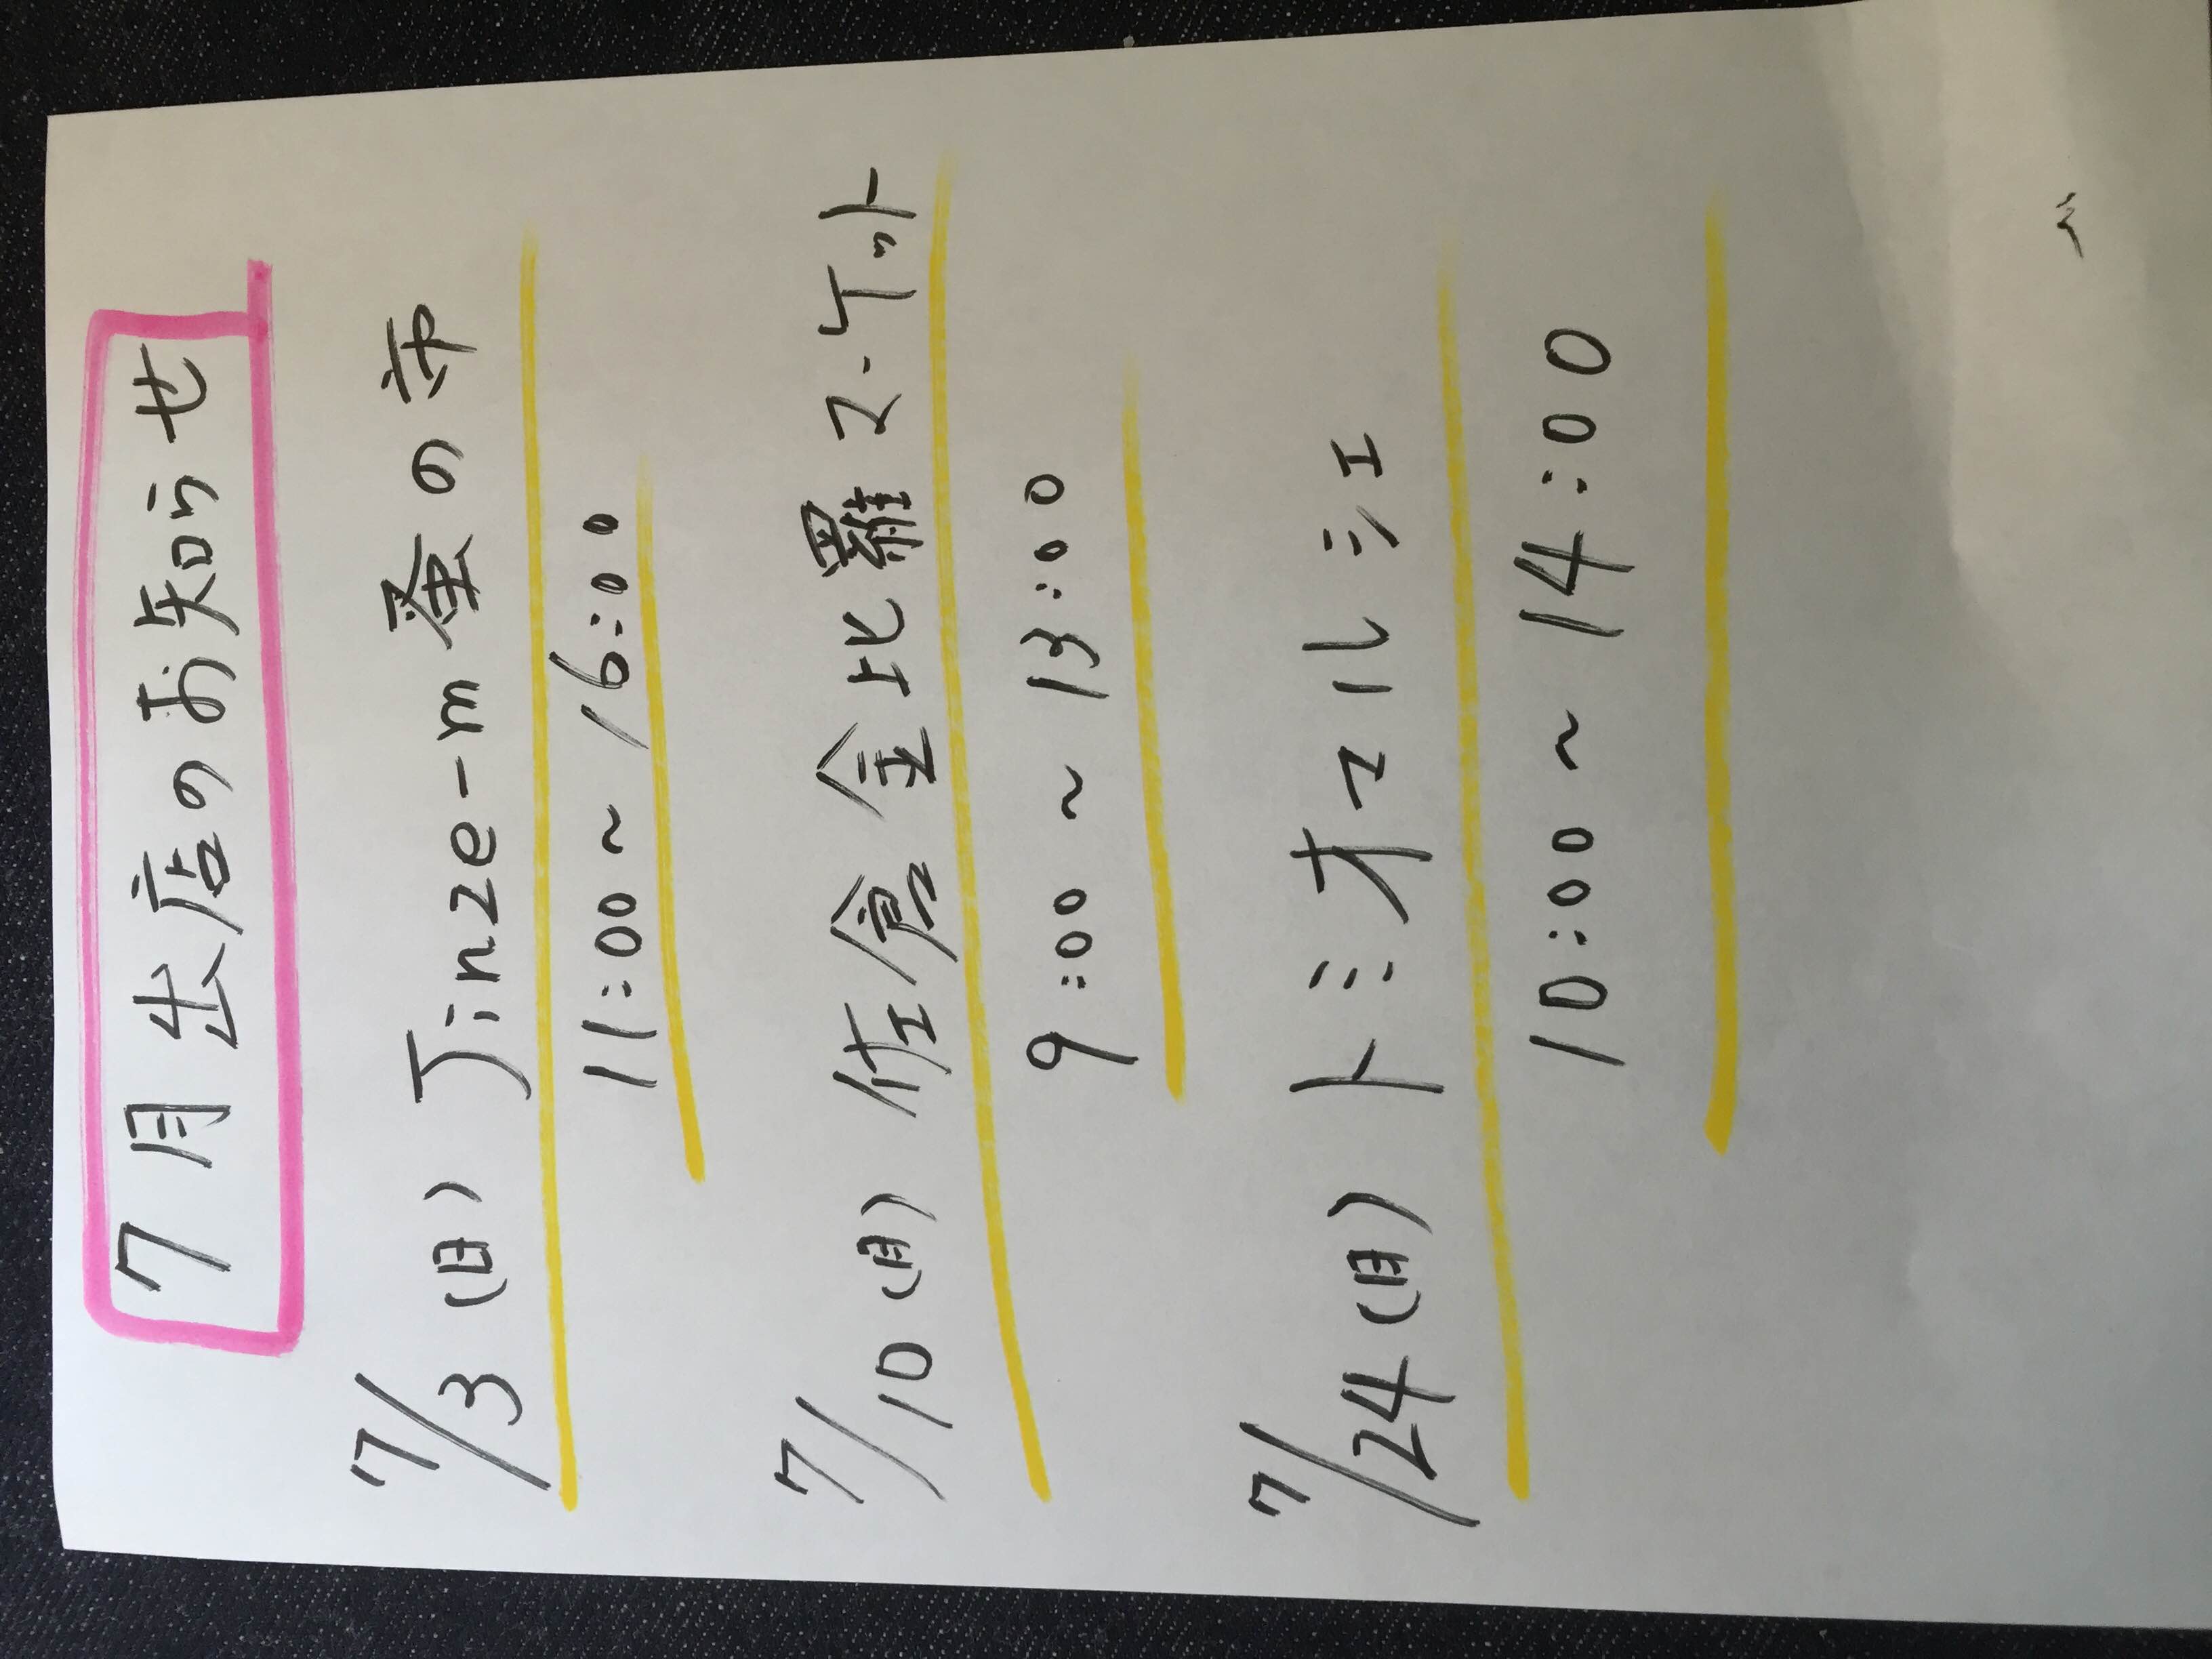 7月出店のお知らせ
7/3(日) Jinze-m 蚤の市
11:00〜16:00
7/10(日) 佐倉金比羅マーケット
9:00〜13:00
7/24(日) トミオマルシェ
10:00〜14:00